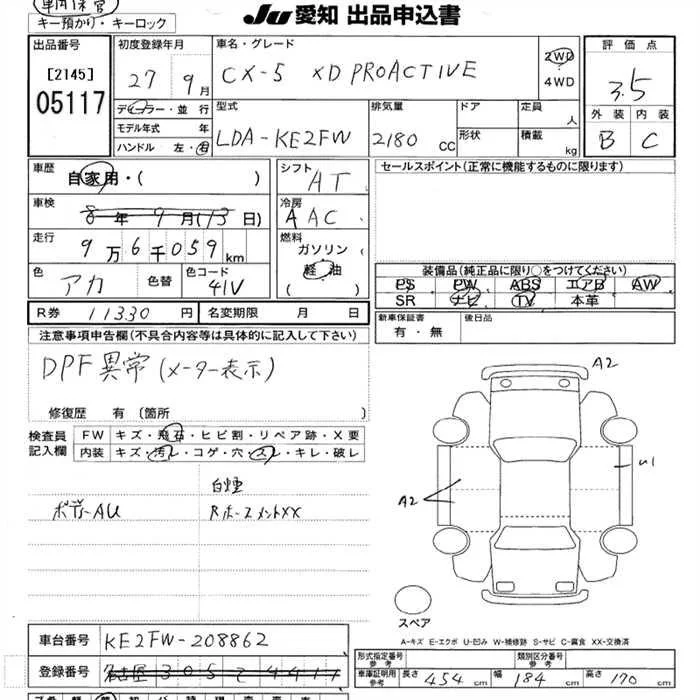 車両保管
キー預かり・キーロック
JU 愛知 出品申込書
出品番号
[2145]
05117
初度登録年月
27 9月
ディーラー・並行
モデル年式 年
ハンドル 左・右
車名・グレード
CX-5 XD PROACTIVE
2WD
4WD
型式
LDA-KE2FW
排気量
2180 CC
ドア
形状
定員 人
積載 kg
評価点
3.5
外装 内装
B C
車歴
自家用・( )
車検
8年 9月(13日)
走行
9万6千059km
色
アカ
色替
色コード
41V
シフト
AT
冷房
AAC
燃料
ガソリン
軽油
( )
セールスポイント(正常に機能するものに限ります)
装備品(純正品に限り○をつけてください)
PS PW ABS エアB AW
SR ナビ TV 本革
R券 11330 円
名変期限 月 日
新車保証書
有・無
後日品
注意事項申告欄(不具合内容等は具体的に記入して下さい)
DPF異常(メーター表示)
修復歴 有(箇所 )
検査員
記入欄
FW キズ・飛石・ヒビ割・リペア跡・X要
内装 キズ・汚レ・コゲ・穴・スレ・キレ・破レ
白煙
ボデーAU
RホースメントXX
A2
A2
U1
スペア
A-キズ E-エクボ U-凹み W-補修跡 S-サビ C-腐食 XX-交換済
車台番号 KE2FW-208862
登録番号
形式指定番号
参考
類別区分番号
参考
車庫証明用
参考
長さ 454 cm 幅 184 cm 高さ 170 cm